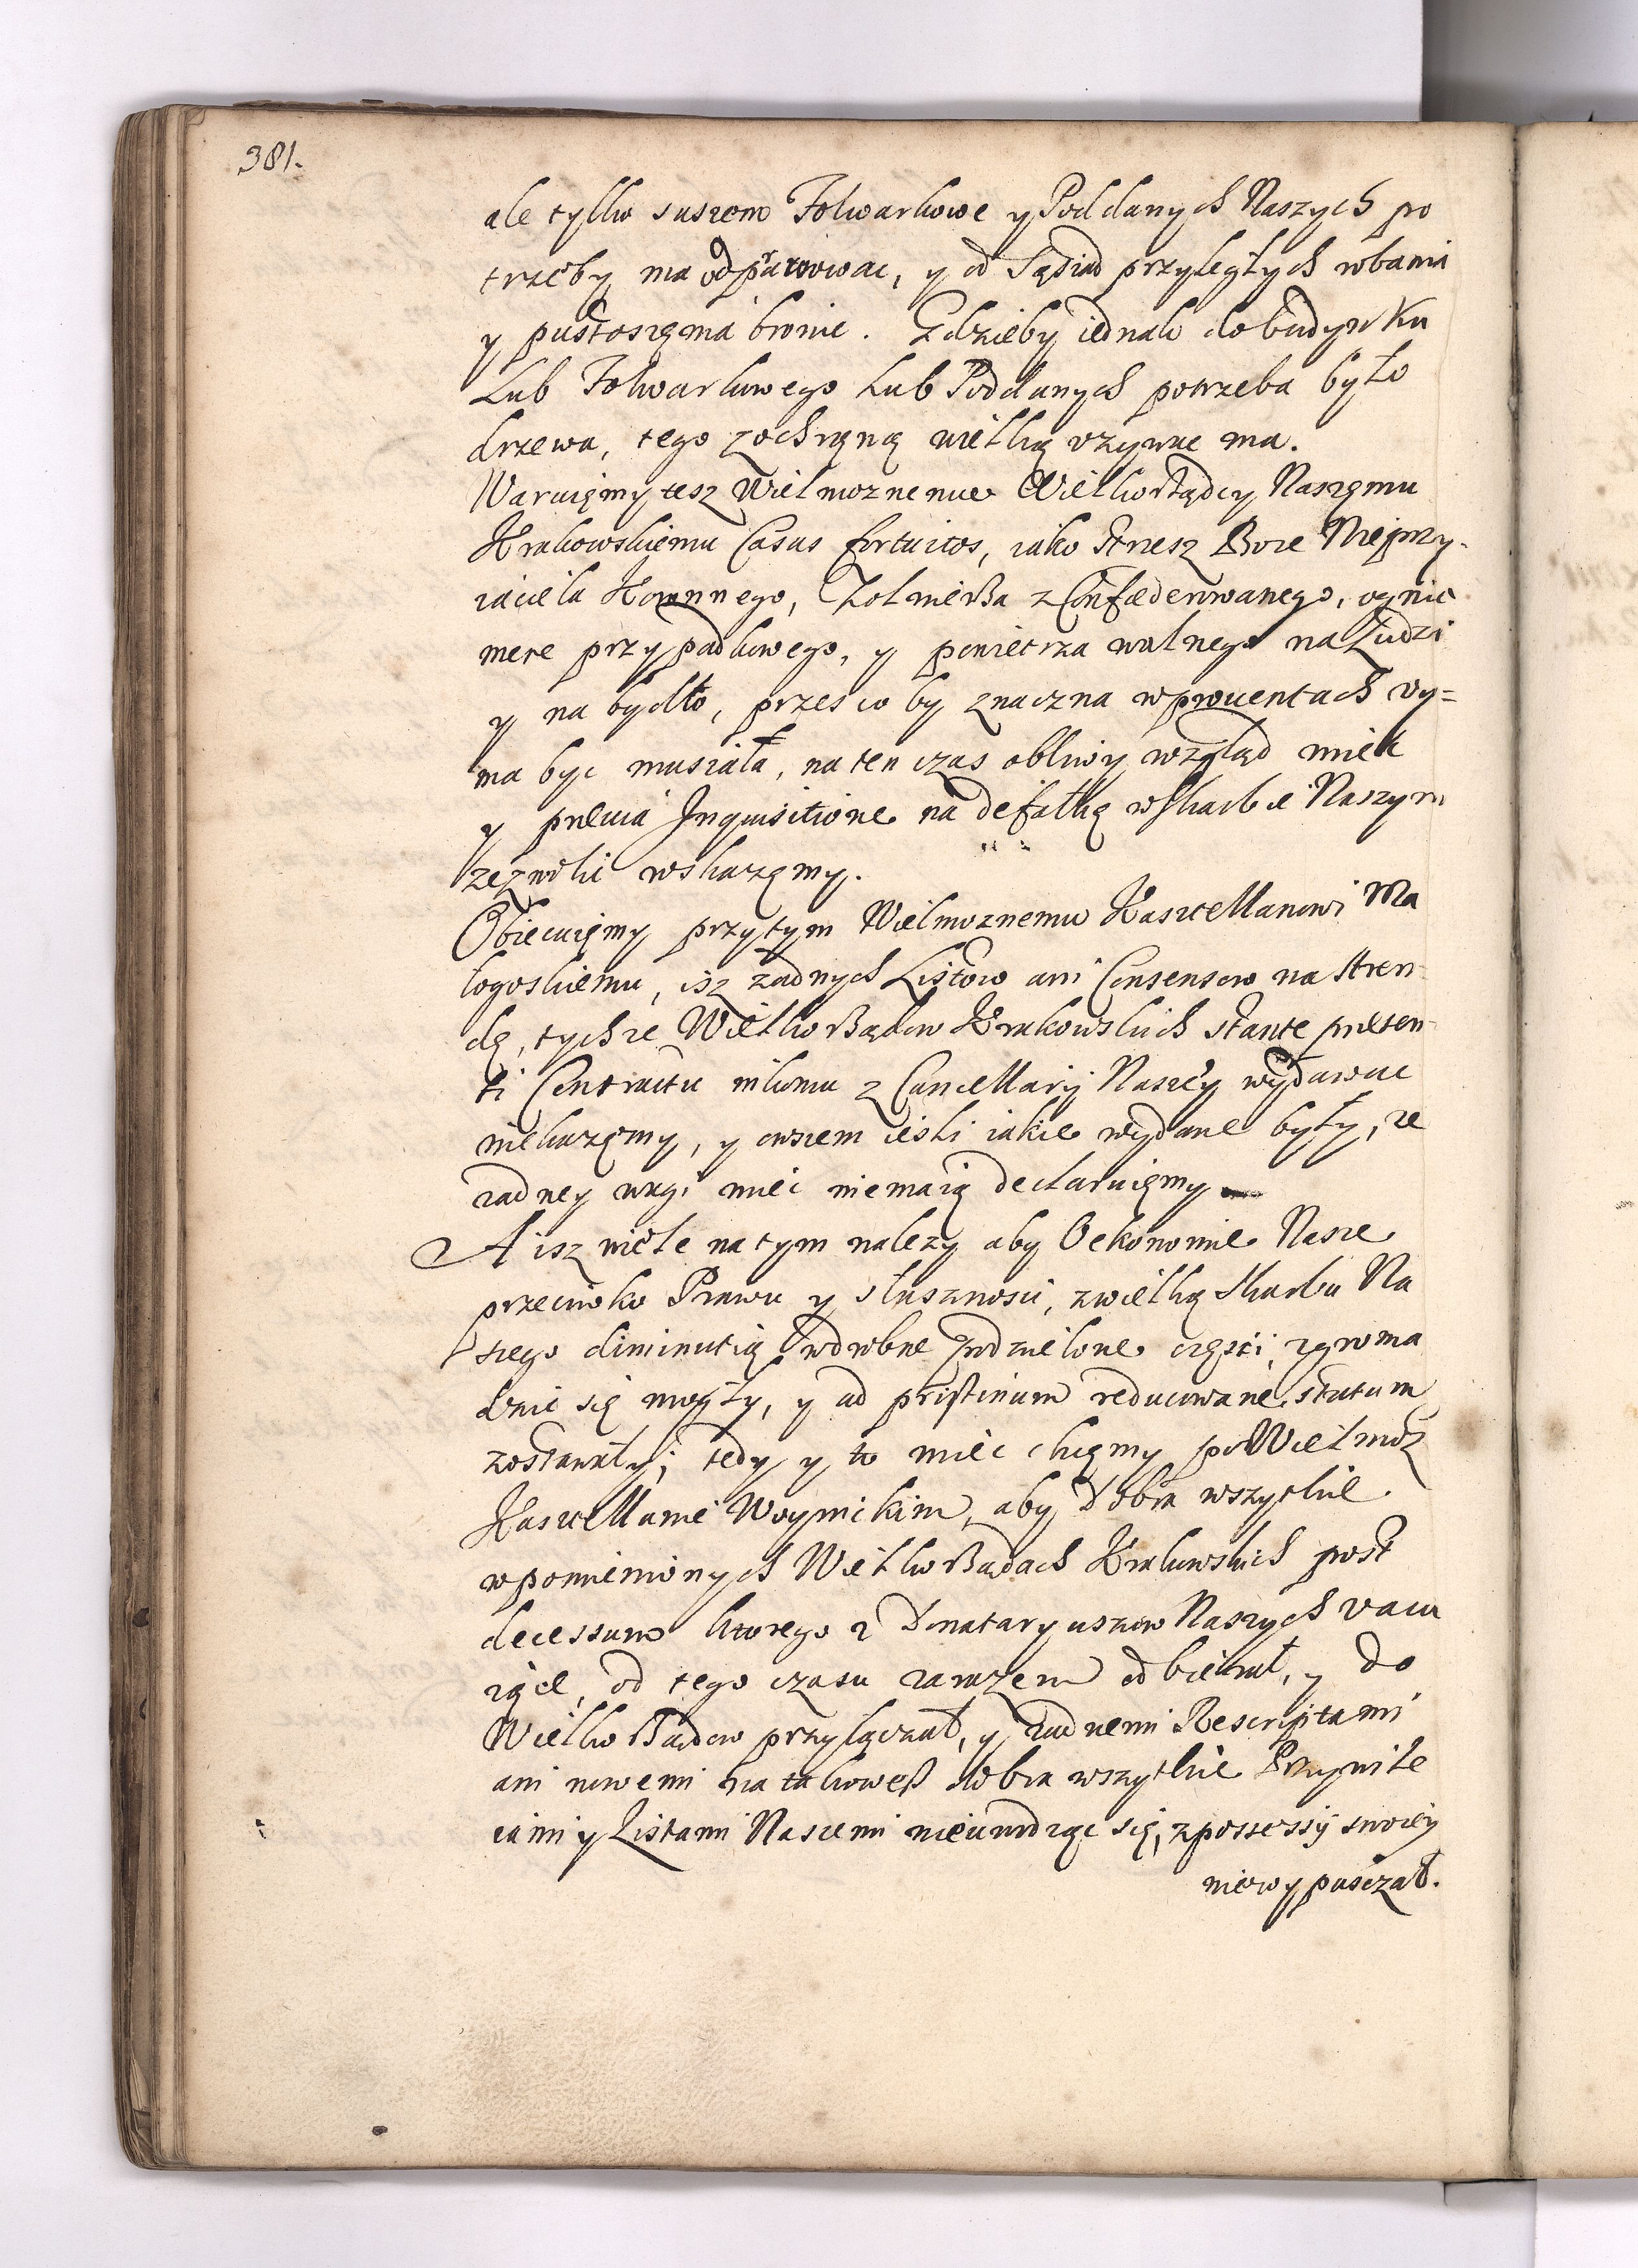 381.
ale tylko suszem Folwarkowe y Poddanych Naszych po
trzeby ma odprawowac, y od Sąsiad przyległych rąbania
y pustoszęnia bronic. Gdzieby iednak do budynku
Lub Folwarkowego Lub Poddanych potrzeba było
drzewa, tego z ochroną wielką vzywac ma.
Waruięmy tesz Wielmoznemu Wielkorządcy Naszęmu
Krakowskiemu Casus fortuitos, iako strzesz Boze Nieprzy-
iaciela Koronnego, Zołnierza zConfoederowanego, ognia
mere przypadkowego, y powietrza walnego na Ludzi
y na bydło, przes co by znaczna wprouentach vy=
ma byc musiała, na ten czas obliwy wzgląd miec
y praeuia Inquisitione na defalkę wskarbie Naszym
zęzwoli wskazęmy.
Obiecuięmy przytym Wielmoznemu Kasztellanowi Ma
łogoskiemu, isz zadnych Listow ani Consensow na Aren
dę, tychze Wielkorządow Krakowskich stante praesen-
ti Contractu nikomu z Cancellarij Naszey wydawac
niekazęmy, y owszem iesli iakie wydane były, ze
zadney wagi miec niemaią declaruięmy
A isz wiele na tym nalezy aby Oekonomie Nasze
przeciwko Prawu y słusznosci, zwielką skarbu Na
szego diminutią wdrobne podzielone częsci, zgroma
dzic się mogły, y ad pristinum reducowane statum
zostawały; tedy y to miec chcęmy po Wielmoz
Kasztellanie Woynickim, aby Dobra wszytkie
wpomienionych Wielkorządach Krakowskich post
decessum ktorego z Donataryuszow Naszych vacu
iące, od tego czasu zarazem odbierał, y do
Wielkorządow przyłączał, y zadnemi Rescriptami
ani nowemi na takowesz dobra wszytkie Przywile
iami y Listami Naszemi nieuwodząc się, z possessij swoiey
niewypusczał.